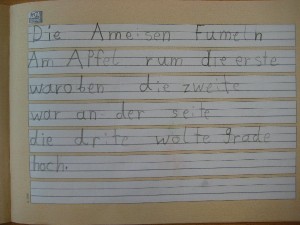 Die Ameisen Fumeln
Am Apfel rum die erste
waroben die zweite
war an der seite
die drite wolte grade
hoch.